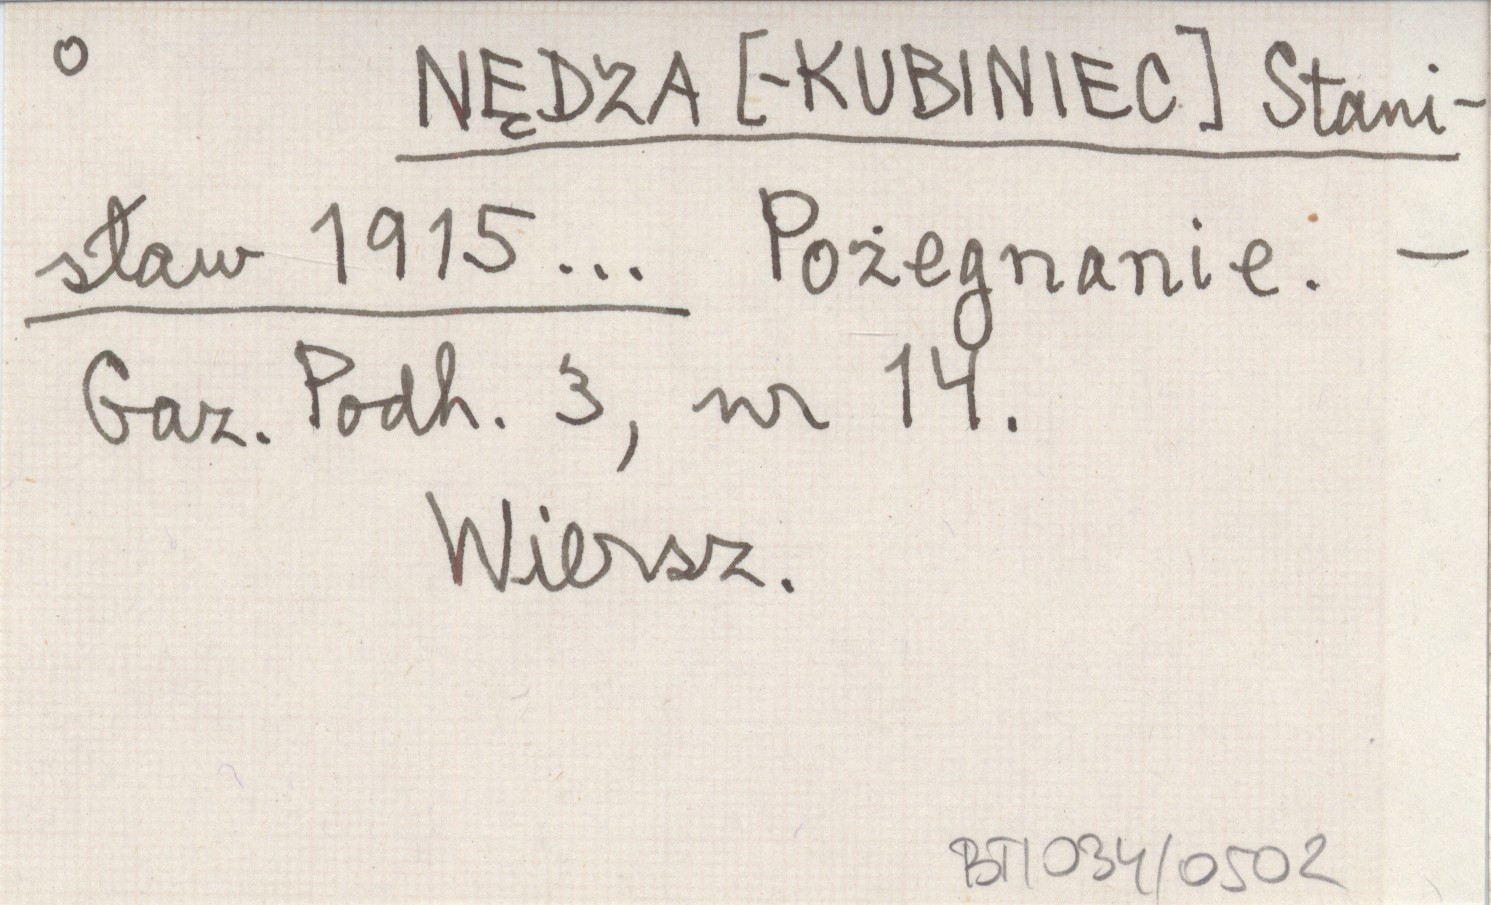 o NĘDZA [-KUBINIEC] Stani-
sław 1915... Pożegnanie. —
Gaz. Podh. 3, nr 14.
Wiersz.
BT/034/0502